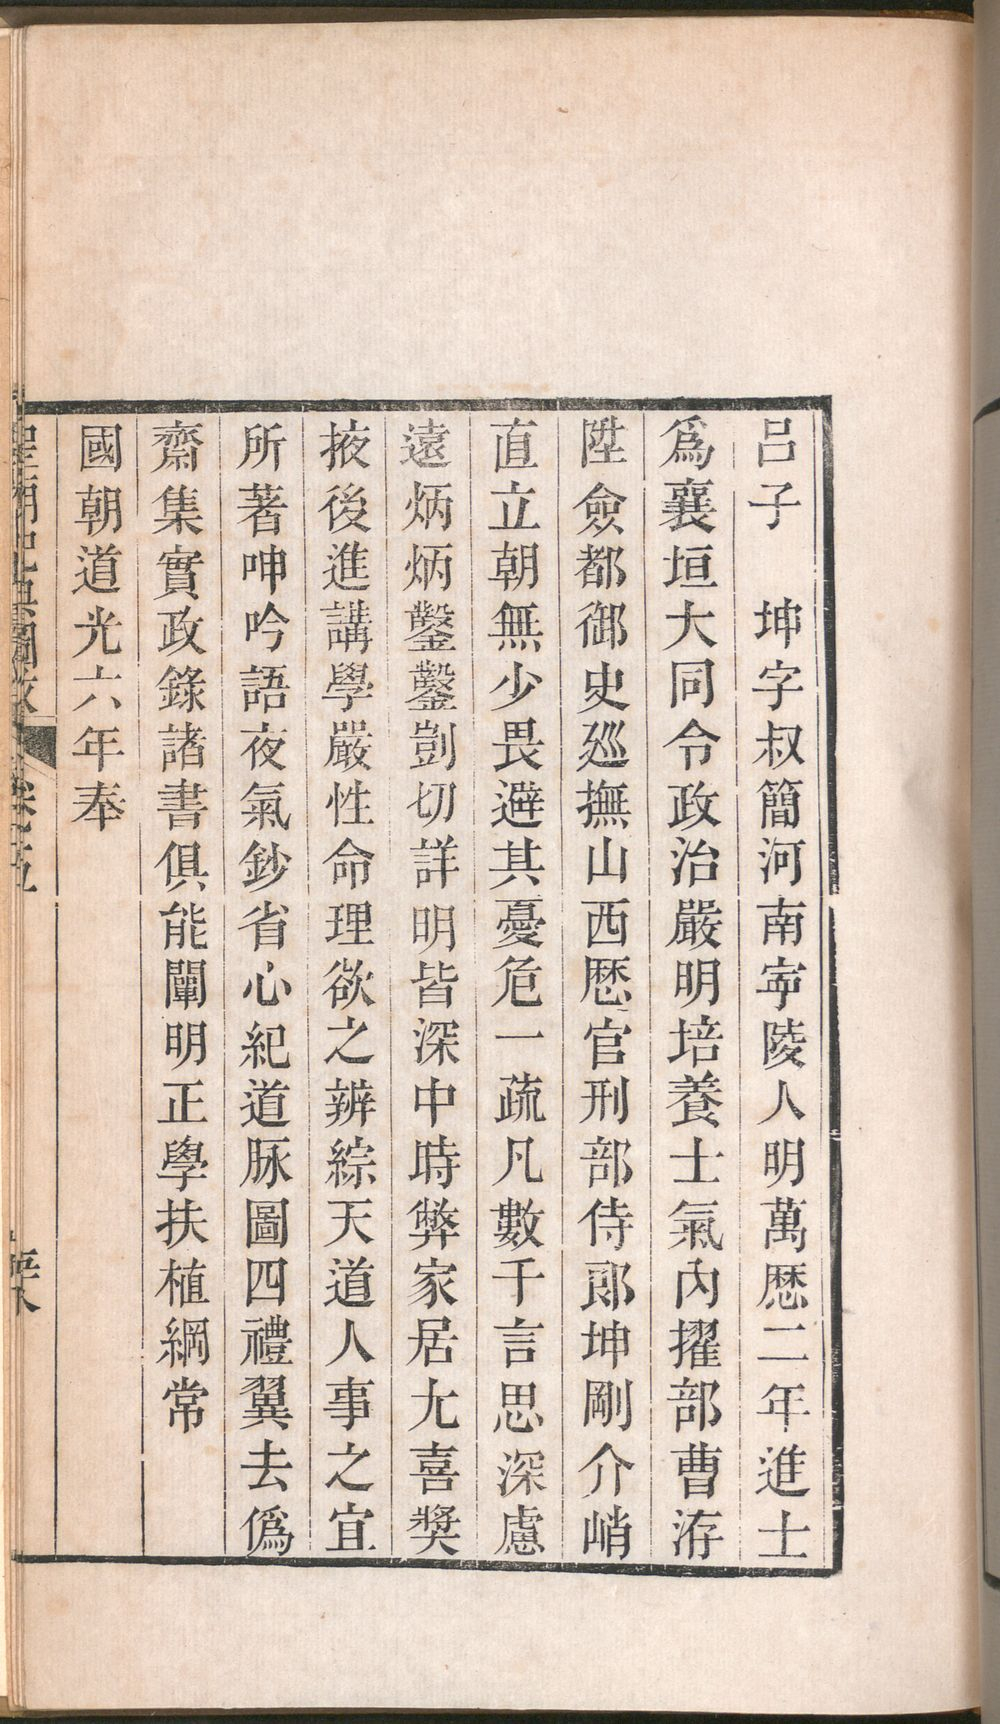 呂子　坤字叔簡河南寧陵人明萬厯二年進士
爲襄垣大同令政治嚴明培養士氣內擢部曹洊
陞僉都御史廵撫山西厯官刑部侍郎坤剛介峭
直立朝無少畏避其憂危一疏凡數千言思深慮
遠炳炳鑿鑿剴切詳明皆深中時弊家居尤喜奬
掖後進講學嚴性命理欲之辨綜天道人事之宜
所著呻吟語夜氣鈔省心紀道脉圖四禮翼去僞
齋集實政錄諸書俱能闡明正學扶植綱常
國朝道光六年奉